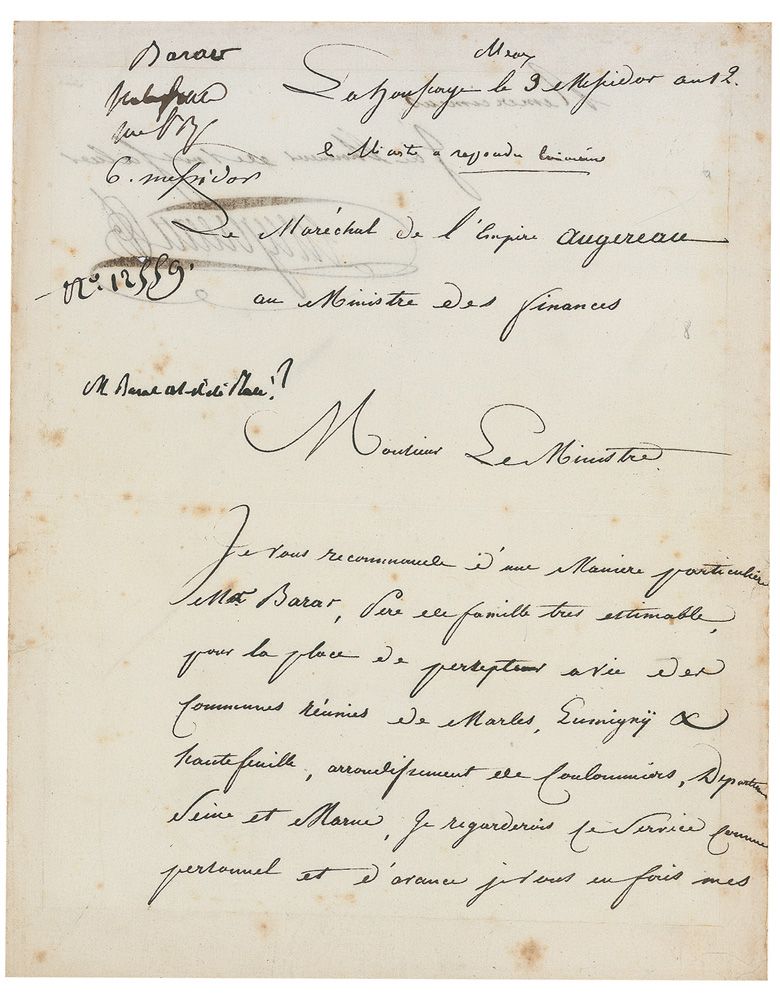 Barav
6. messidor
N.o 12559.
Lahoussaye le 3 Messidor an 12.
le Ministre a repondu
Le Maréchal de l'Empire augereau
au Ministre des finances
M Barav
Monsieur Le Ministre
Je vous recommande d'une Maniere particulière
Mr Barav, Pere de famille tres estimable,
pour la place de persepteur a vie des
Communes réunies de Marles, Lumignÿ &
hautefeuille, arrondissement de Coulommiers, Departem
Seine et Marne, Je regarderois ce Service Comme
personnel et d'avance je vous en fais mes